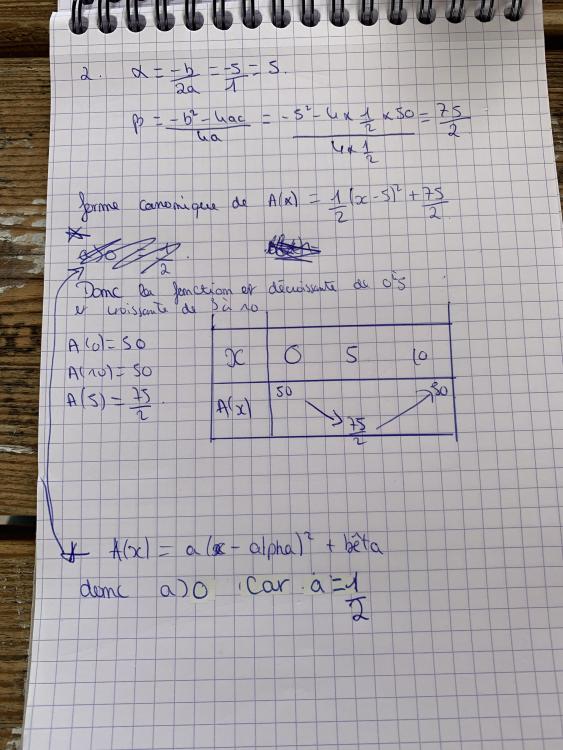 2. α = -b/2a = -5/1 = 5.
β = -b² - 4ac/4a = -5² - 4 x 1/2 x 50/4 x 1/2 = 75/2
forme canonique de A(x) = 1/2 (x - 5)² + 75/2.
*
Donc la fonction est décroissante de 0 à 5
et croissante de 5 à 10
A(0) = 50
A(10) = 50
A(5) = 75/2
x 0 5 10
A(x) 50 75/2 50
* A(x) = a(x - alpha)² + bêta
donc a>0 car a = 1/2